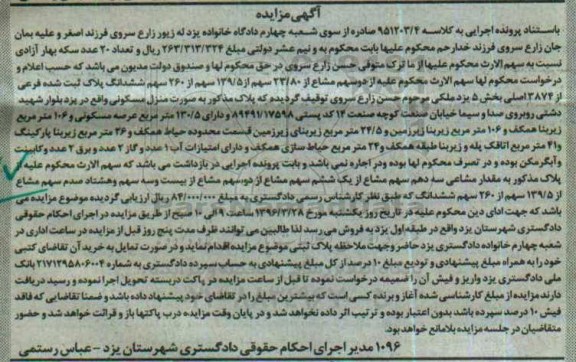 آگهی مزایده
باستناد پرونده اجرایی به کلاسه ۹۵۱۲۰۳/۴ صادره از سوی شعبه چهارم دادگاه خانواده یزد له زیور زارع سروی فرزند اصغر و علیه بمان
جان زارع سروی فرزند خدارحم محکوم علیها بابت محکوم به و نیم عشر دولتی مبلغ ۲۶۳/۳۱۳/۳۲۴ ریال و تعداد ۲۰ عدد سکه بهار آزادی
نسبت به سهم الارث محکوم علیها از ما ترک متوفی حسن زارع سروی در حق محکوم لها و صندوق دولت مدیون می باشد که حسب اعلام و
درخواست محکوم لها سهم الارث محکوم علیه از دوسهم مشاع از ۲۳/۸۰ سهم از ۱۳۹/۵ سهم از ۲۶۰ سهم ششدانگ پلاک ثبت شده فرعی
از ۳۸۷۴ اصلی بخش ۵ یزد ملکی مرحوم حسن زارع سروی توقیف گردیده که پلاک مذکور به صورت منزل مسکونی واقع در یزد بلوار شهید
دشتی روبروی صدا و سیما خیابان صنعت کوچه صنعت ۱۴ کد پستی ۸۹۴۹۱/۱۷۵۹۸ و دارای ۱۳۰/۵ متر مربع عرصه مسکونی و ۱۰۶ متر مربع
زیربنا همکف و ۱۰۶ متر مربع زیربنا زیرزمین و ۲۴/۵ متر مربع زیربنای زیرزمین قسمت محدوده حیاط همکف و ۳۶ متر مربع زیربنا پارکینگ
و ۴۱ متر مربع اتاقک پله و زیربنا طبقه همکف و ۲۴ متر مربع حیاط سازی همکف و دارای امتیازات آب ۱ عدد و گاز ۲ عدد و برق ۲ عدد و کابینت
و آبگرمکن بوده و در تصرف محکوم لها بوده ودر اجاره نمی باشد و بابت پرونده اجرایی در بازداشت می باشد که سهم الارث محکوم علیه از
پلاک مذکور به مقدار مشاعی سه دهم سهم مشاع از یک ششم سهم مشاع از دو سهم مشاع از بیست وسه سهم وهشتاد صدم سهم مشاع
از ۱۳۹/۵ سهم از ۲۶۰ سهم ششدانگ که طبق نظر کارشناس رسمی دادگستری به مبلغ ۸۴/۰۰۰/۰۰۰ ریال ارزیابی گردیده موضوع مزایده می
باشد که جهت ادای دین محکوم علیه در تاریخ روز یکشنبه مورخ ۱۳۹۶/۳/۲۸ ساعت ۹ الی ۱۰ صبح از طریق مزایده در اجرای احکام حقوقی
دادگستری شهرستان یزد واقع در طبقه اول یزد به فروش می رسد لذا طالبین می توانند ظرف مدت پنج روز قبل از مزایده در ساعت اداری در
شعبه چهارم خانواده دادگستری یزد حاضر وجهت ملاحظه پلاک ثبتی موضوع مزایده اقدام نماید و در صورت تمایل به خرید آن تقاضای کتبی
خود را به همراه مبلغ پیشنهادی و تودیع مبلغ ۱۰ درصد از کل مبلغ پیشنهادی به حساب سپرده دادگستری به شماره ۲۱۷۱۲۹۵۸۰۶۰۰۴ بانک
ملی دادگستری یزد واریز و فیش آن را ضمیمه درخواست نموده تا قبل از ساعت مزایده در پاکت دربسته تحویل اجرا نموده و رسید دریافت
دارند مزایده از مبلغ کارشناسی شده آغاز و برنده کسی است که بیشترین مبلغ را در تقاضای خود پیشنهاد داده باشد و ضمنا تقاضایی که فاقد
فیش ۱۰ درصد سپرده باشد بدون اعتبار بوده و ترتیب اثر داده نخواهد شد و در پایان وقت مزایده درب پاکتها باز و قرائت خواهد شد و حضور
متقاضیان در جلسه مزایده بلامانع خواهد بود.
۱۰۹۶ مدیر اجرای احکام حقوقی دادگستری شهرستان یزد - عباس رستمی